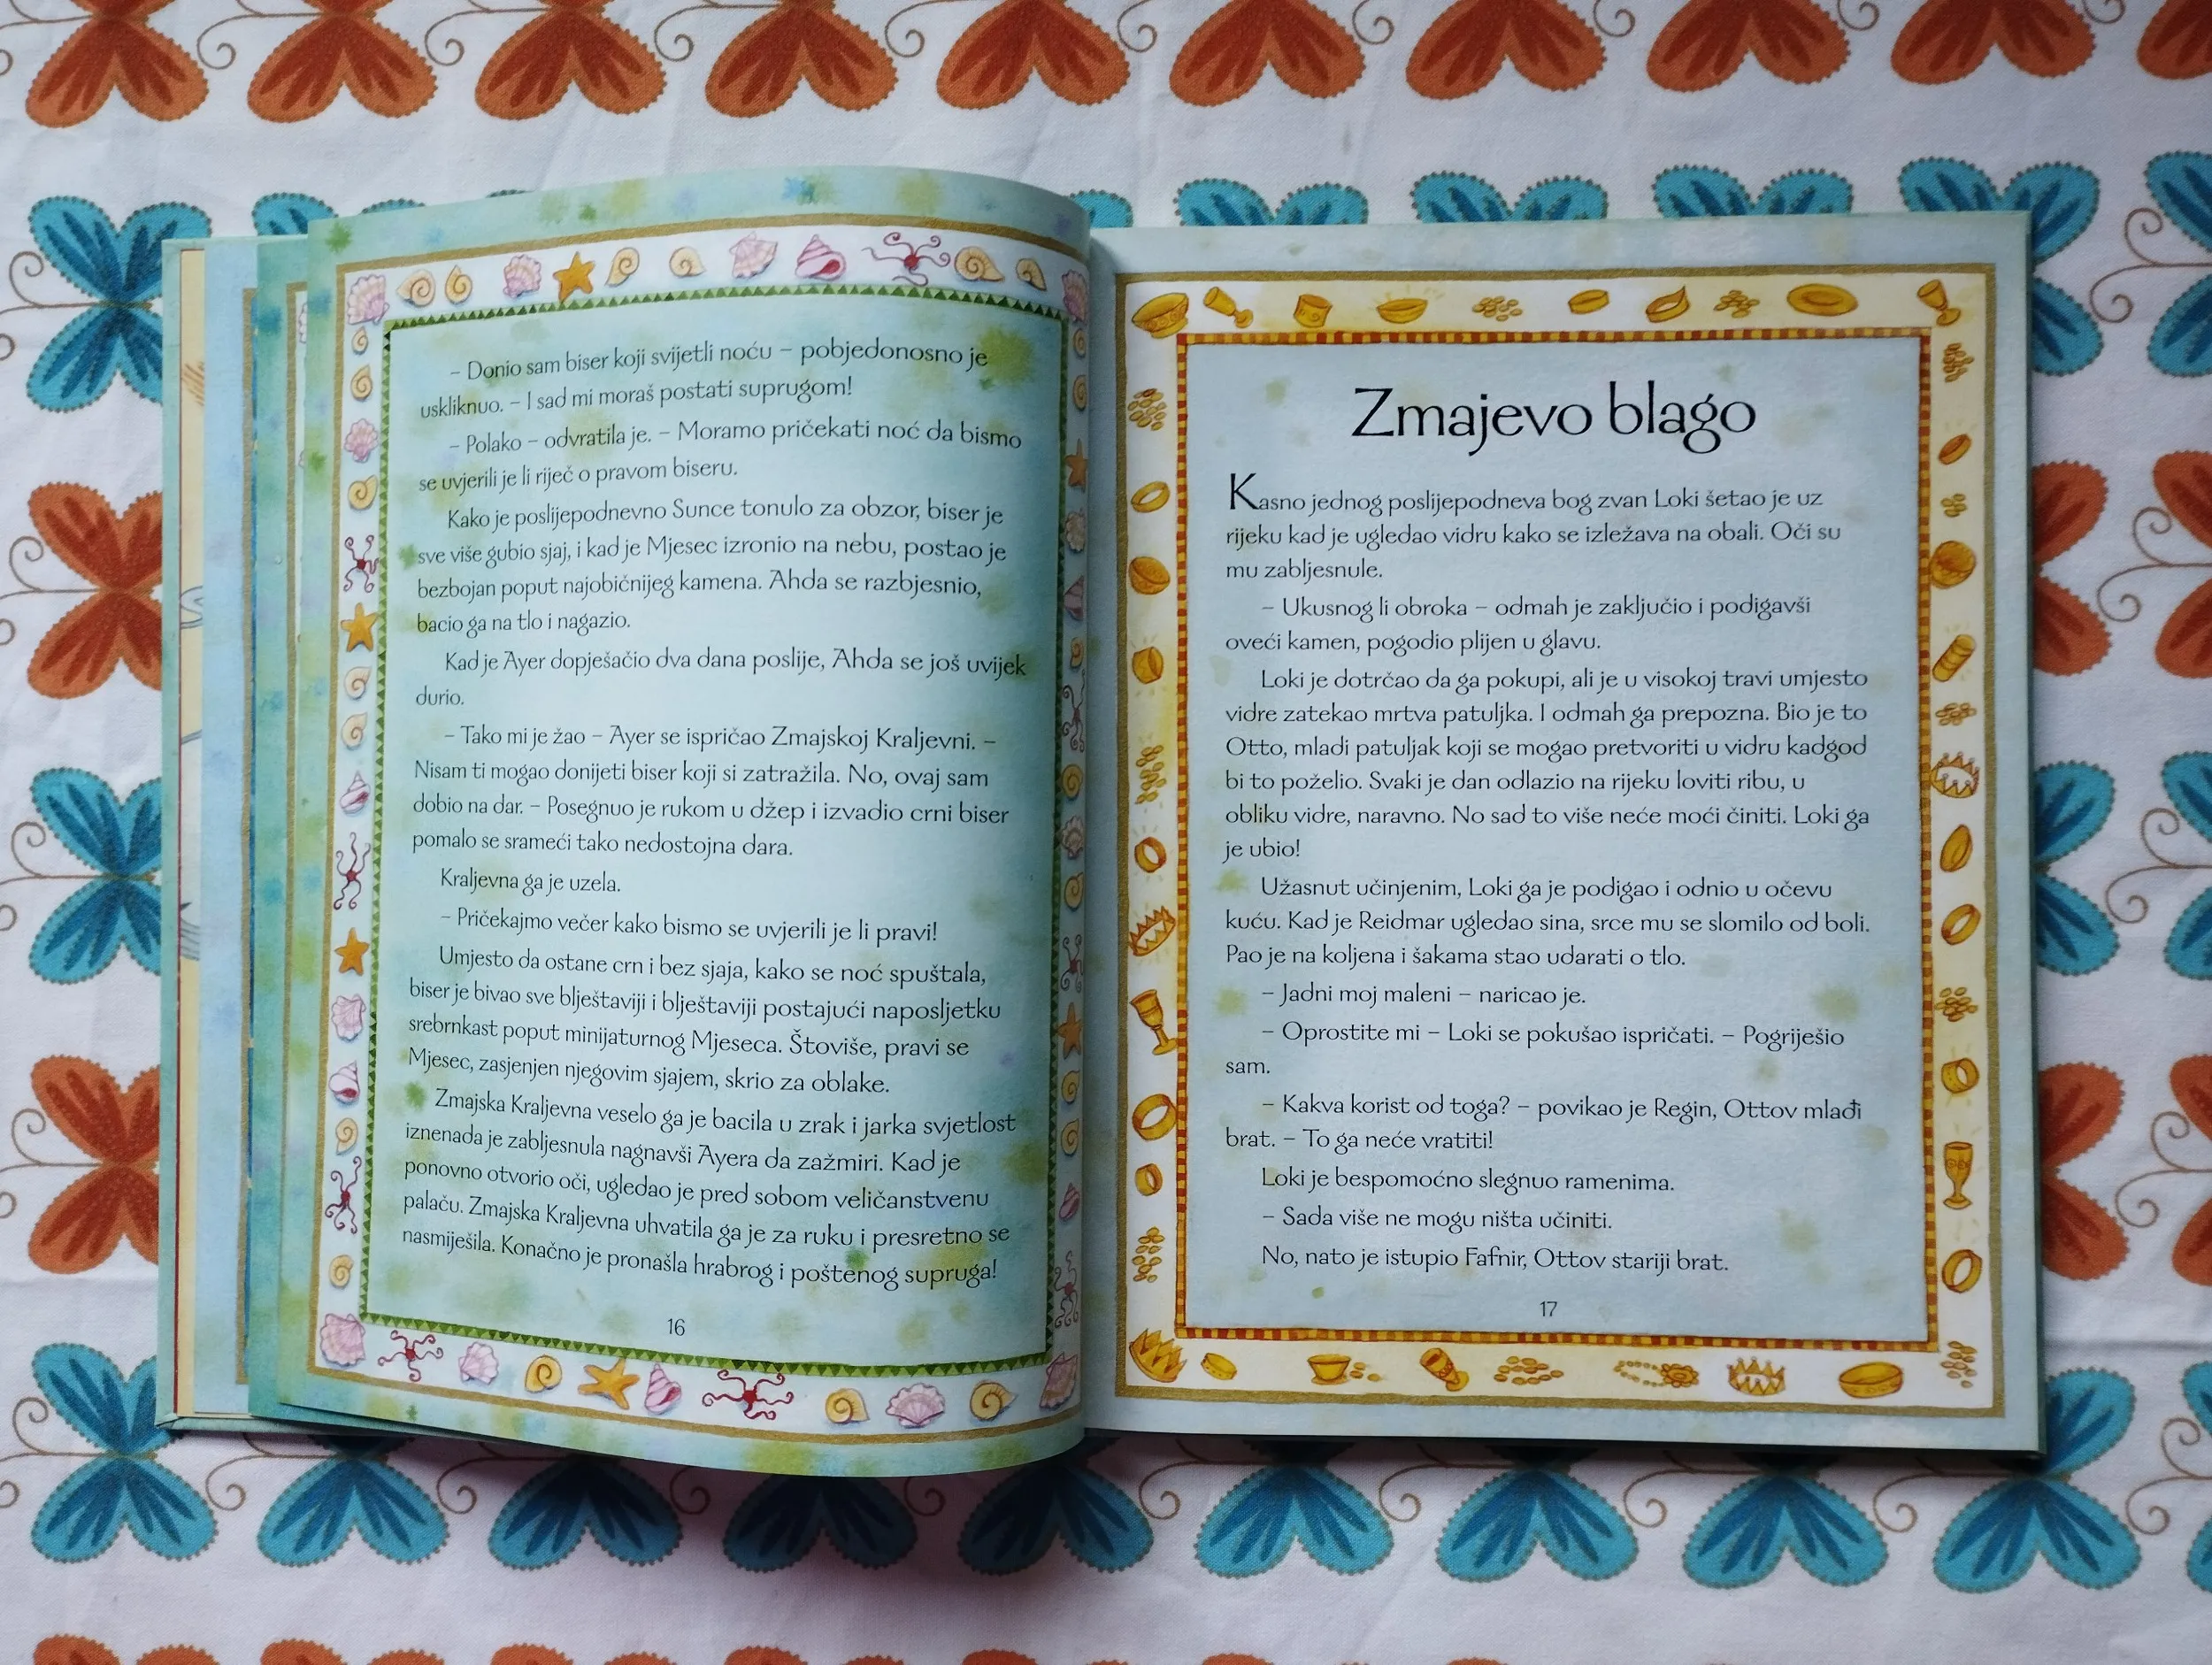 – Donio sam biser koji svijetli noću – pobjedonosno je
uskliknuo. – I sad mi moraš postati suprugom!
– Polako – odvratila je. – Moramo pričekati noć da bismo
se uvjerili je li riječ o pravom biseru.
Kako je poslijepodnevno Sunce tonulo za obzor, biser je
sve više gubio sjaj, i kad je Mjesec izronio na nebu, postao je
bezbojan poput najobičnijeg kamena. Ahda se razbjesnio,
bacio ga na tlo i nagazio.
Kad je Ayer dopješačio dva dana poslije, Ahda se još uvijek
durio.
– Tako mi je žao – Ayer se ispričao Zmajskoj Kraljevni. –
Nisam ti mogao donijeti biser koji si zatražila. No, ovaj sam
dobio na dar. – Posegnuo je rukom u džep i izvadio crni biser
pomalo se srameći tako nedostojna dara.
Kraljevna ga je uzela.
– Pričekajmo večer kako bismo se uvjerili je li pravi!
Umjesto da ostane crn i bez sjaja, kako se noć spuštala,
biser je bivao sve blještaviji i blještaviji postajući naposljetku
srebrnkast poput minijaturnog Mjeseca. Štoviše, pravi se
Mjesec, zasjenjen njegovim sjajem, skrio za oblake.
Zmajska Kraljevna veselo ga je bacila u zrak i jarka svjetlost
iznenada je zabljesnula nagnavši Ayera da zažmiri. Kad je
ponovno otvorio oči, ugledao je pred sobom veličanstvenu
palaču. Zmajska Kraljevna uhvatila ga je za ruku i presretno se
nasmiješila. Konačno je pronašla hrabrog i poštenog supruga!
16
Zmajevo blago
Kasno jednog poslijepodneva bog zvan Loki šetao je uz
rijeku kad je ugledao vidru kako se izležava na obali. Oči su
mu zabljesnule.
– Ukusnog li obroka – odmah je zaključio i podigavši
oveći kamen, pogodio plijen u glavu.
Loki je dotrčao da ga pokupi, ali je u visokoj travi umjesto
vidre zatekao mrtva patuljka. I odmah ga prepozna. Bio je to
Otto, mladi patuljak koji se mogao pretvoriti u vidru kadgod
bi to poželio. Svaki je dan odlazio na rijeku loviti ribu, u
obliku vidre, naravno. No sad to više neće moći činiti. Loki ga
je ubio!
Užasnut učinjenim, Loki ga je podigao i odnio u očevu
kuću. Kad je Reidmar ugledao sina, srce mu se slomilo od boli.
Pao je na koljena i šakama stao udarati o tlo.
– Jadni moj maleni – naricao je.
– Oprostite mi – Loki se pokušao ispričati. – Pogriješio
sam.
– Kakva korist od toga? – povikao je Regin, Ottov mlađi
brat. – To ga neće vratiti!
Loki je bespomoćno slegnuo ramenima.
– Sada više ne mogu ništa učiniti.
No, nato je istupio Fafnir, Ottov stariji brat.
17